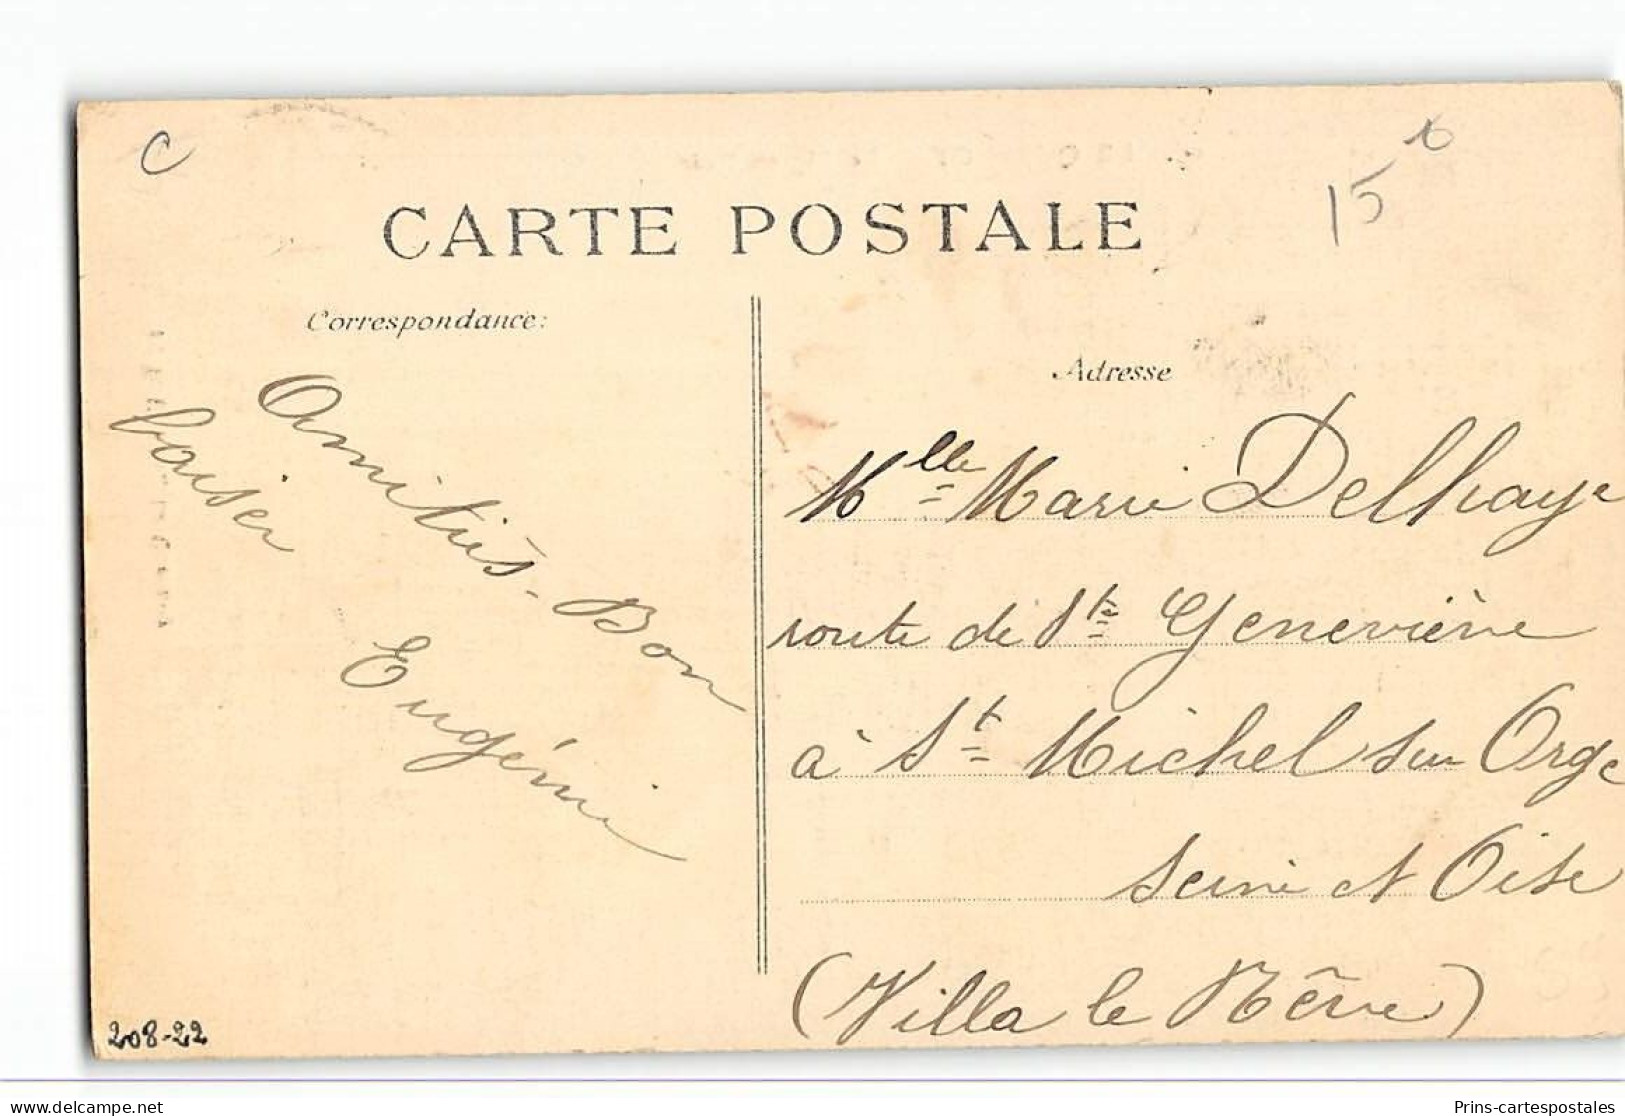 C
15
CARTE POSTALE
Correspondance:
Adresse
Amitiés - Bon
baiser
Eugénie
Mlle Marie Delhaye
route de Ste Geneviève
à St Michel sur Orge
Seine et Oise
(Villa le Rêve)
208-22
delcampe.net
Prins-cartespostales